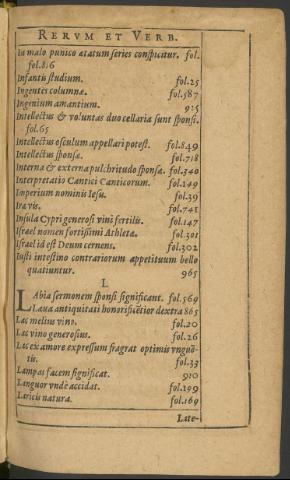 RERVM ET VERB.
In malo punico ætatum series conspicitur. fol.
fol.816
Infantis studium. fol.25
Ingentes columnæ. fol.587
Ingenium amantium. 925
Intellectus & voluntas duo cellaria sunt sponsi.
fol.65
Intellectus osculum appellari potest. fol.849
Intellectus sponsæ. fol.718
Interna & externa pulchritudo sponsæ. fol.340
Interpretatio Cantici Canticorum. fol.149
Imperium nominis Iesu. fol.39
Iræ vis. fol.741
Insula Cypri generosi vini fertilis. fol.147
Israel nomen fortissimi Athletæ. fol.301
Israel id est Deum cernens. fol.302
Iusti intestino contrariorum appetituum bello
quatiuntur. 965
L
LAbia sermonem sponsi significant. fol.569
Laua antiquitati honorificẽtior dextra 865
Lac melius vino. fol.20
Lac vino generosius. fol.26
Lac ex amore expressum fragrat optimis vnguẽ-
tis. fol.33
Lampas facem significat. 910
Languor vndè accidat. fol.199
Laricis natura. fol.169
Late-